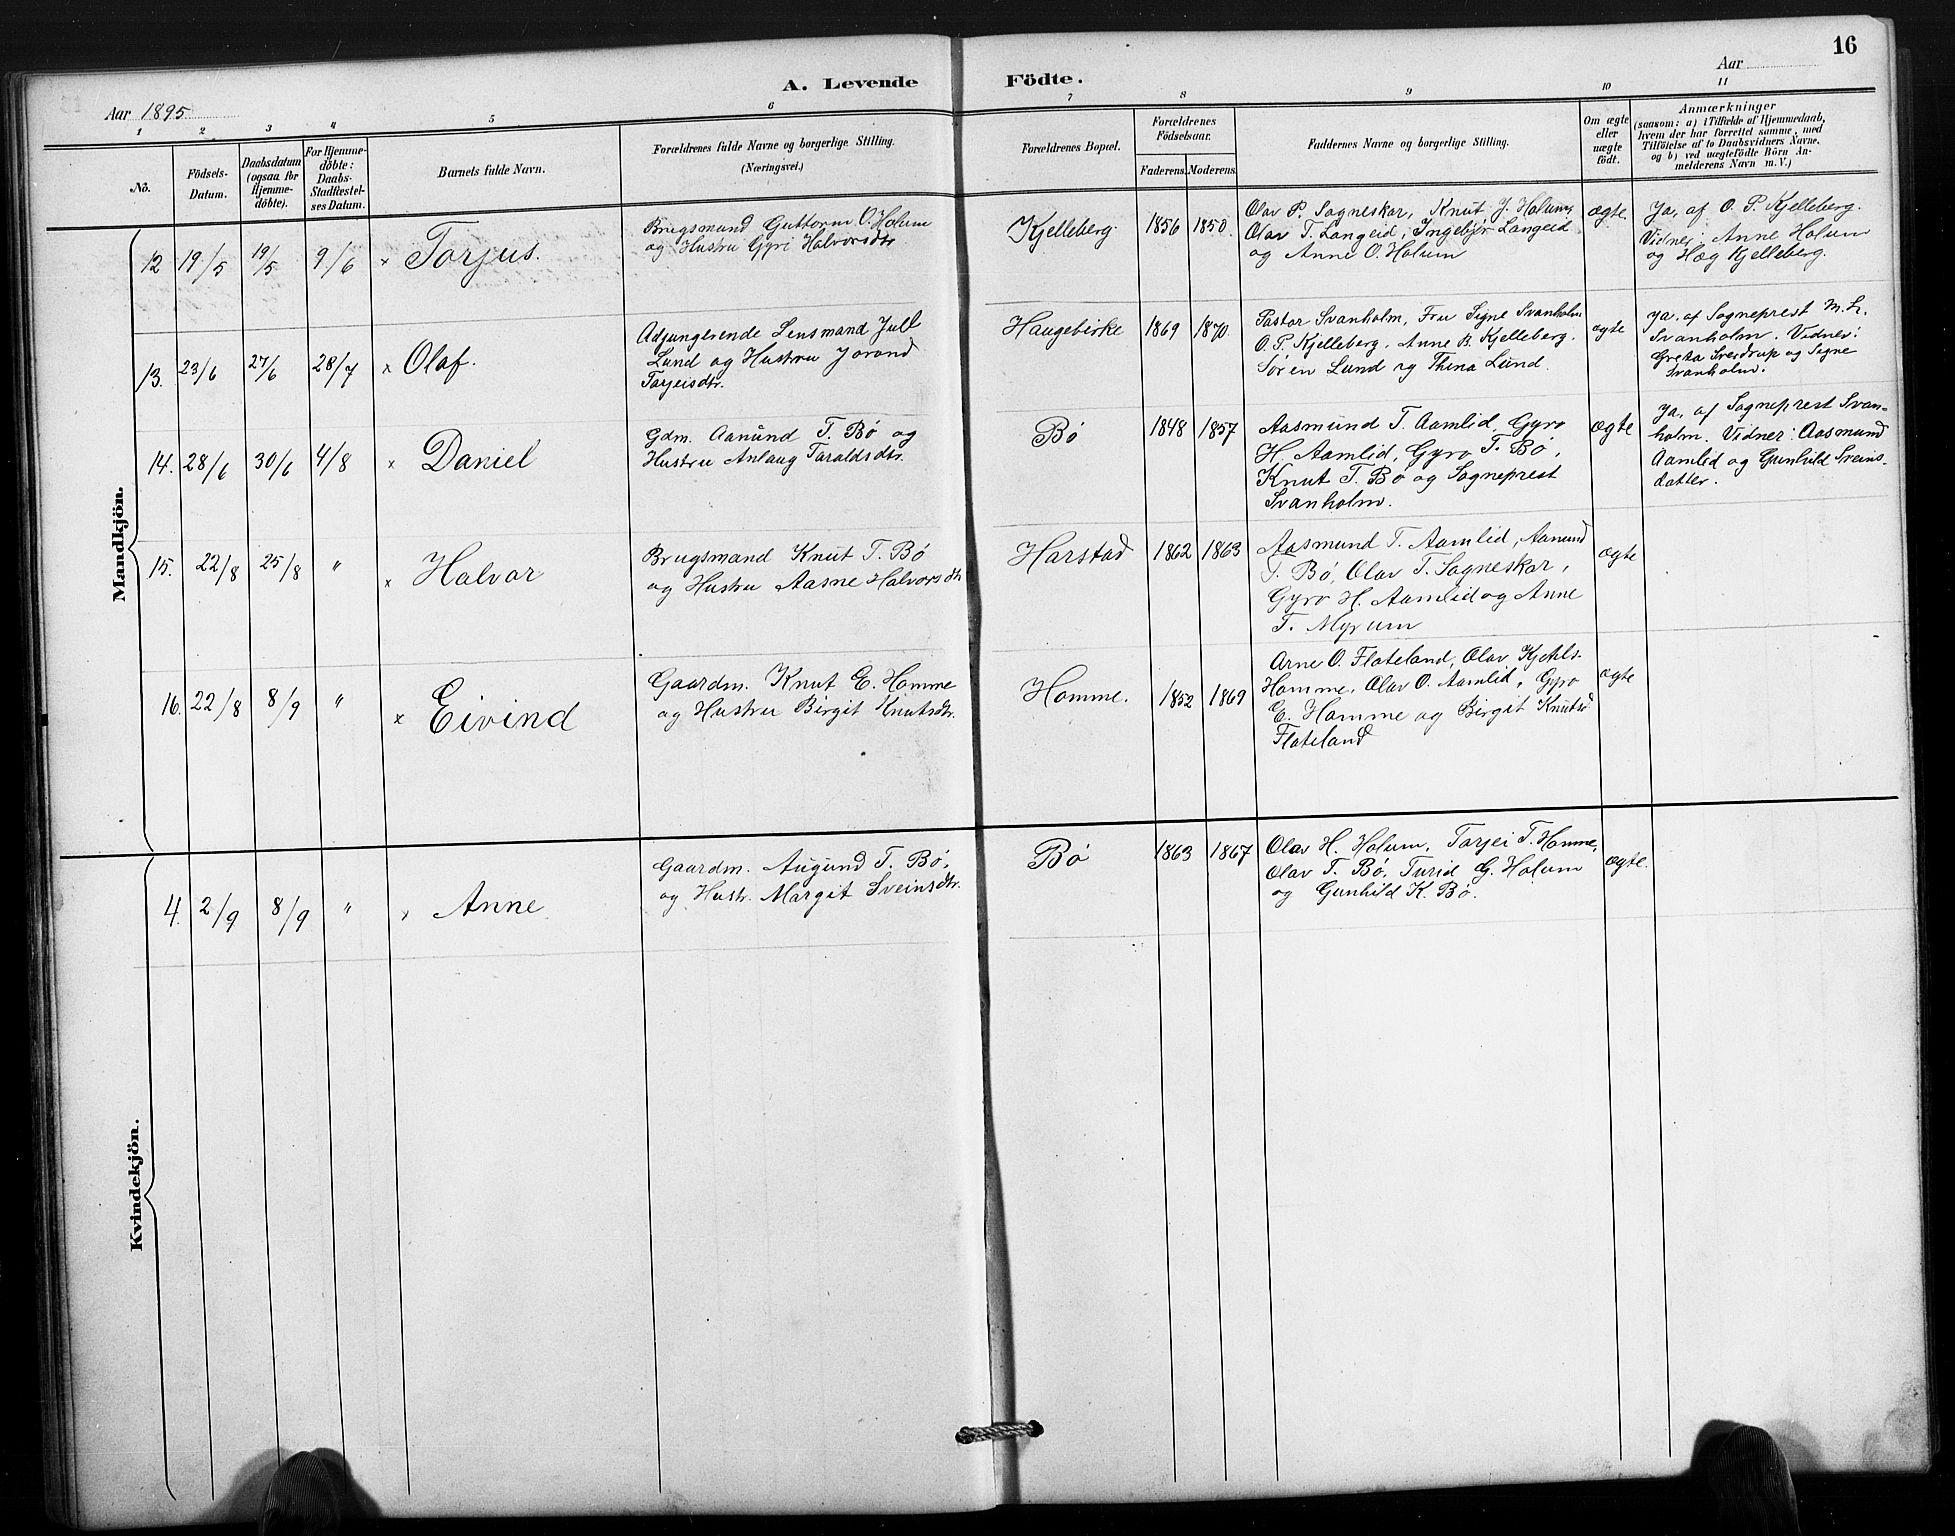 16
A. Levende Födte.
Aar 1895
Aar
1 2 3 4 5 6 7 8 9 10 11
No.
Födsels-
Datum.
Daabsdatum
(ogsaa for
Hjemme-
döbte).
For Hjemme-
döbte:
Daabs-
Stadfæstel-
ses Datum.
Barnets fulde Navn.
Forældrenes fulde Navne og borgerlige Stilling.
(Næringsvei.)
Forældrenes Bopæl.
Forældrenes
Födselsaar.
Faderens. Moderens.
Faddernes Navne og borgerlige Stilling.
Om ægte
eller
uægte
födt.
Anmærkninger
(saasom: a) i Tilfælde af Hjemmedaab,
hvem der har forrettet samme, med
Tilföielse af to Daabsvidners Navne,
og b) ved uægtefödte Börn An-
melderens Navn m. V.)
Mandkjön.
12 19/5 19/5 9/6 x Torjus.
Brugsmand Guttorm O. Holum
og Hustru Gyri Halvorsdtr
Kjelleberg. 1856 1850.
Olav P. Sagneskar, Knut J. Holum,
Olav T. Langeid, Ingebjør Langeid
og Anne O. Holum
ægte.
Ja, af O. P. Kjelleberg.
Vidner: Anne Holum
og Hæg Kjelleberg.
13. 23/6 27/6 28/7 x Olaf.
Adjungerende Lensmand Jull
Lund og Hustru Jorand
Tarjeisdtr.
Haugebirke 1869 1870.
Pastor Svanholm, Fru Signe Svanholm
O. P. Kjelleberg, Anne B. Kjelleberg.
Søren Lund og Thina Lund.
ægte
Ja, af Sogneprest M. L.
Svanholm. Vidner:
Greta Sverdrup og Signe
Svanholm.
14. 28/6 30/6 4/8 x Daniel
Gdm. Aanund T. Bø og
Hustru Anlaug Taraldsdtr.
Bø 1848 1857
Aasmund T. Aamlid, Gyro
H. Aamlid, Gyro T. Bø,
Knut T. Bø og Sogneprest
Svanholm.
ægte
Ja, af Sogneprest Svan-
holm. Vidner: Aasmund
Aamlid og Gunhild Sveins-
datter.
15. 22/8 25/8 " x Halvor
Brugsmand Knut T. Bø
og Hustru Aasne Halvorsdtr
Harstad 1862 1863
Aasmund T. Aamlid, Aanund
T. Bø, Olav T. Sagneskar,
Gyro H. Aamlid og Anne
T. Myrum
ægte
16. 22/8 8/9 " x Eivind
Gaardm. Knut E. Homme
og Hustru Birgit Knutsdtr.
Homme. 1852 1869
Arne O. Flateland, Olav Kjetils-
Homme, Olav O. Aamlid, Gyro
E. Homme og Birgit Knutsd
Flateland
ægte
Kvindekjön.
4. 2/9 8/9 " x Anne
Gaardm. Augund T. Bø,
og Hustr. Margit Sveinsdtr.
Bø 1863 1867
Olav H. Holum, Tarjei T. Homme,
Olav T. Bø, Turid G. Holum
og Gunhild K. Bø.
ægte.